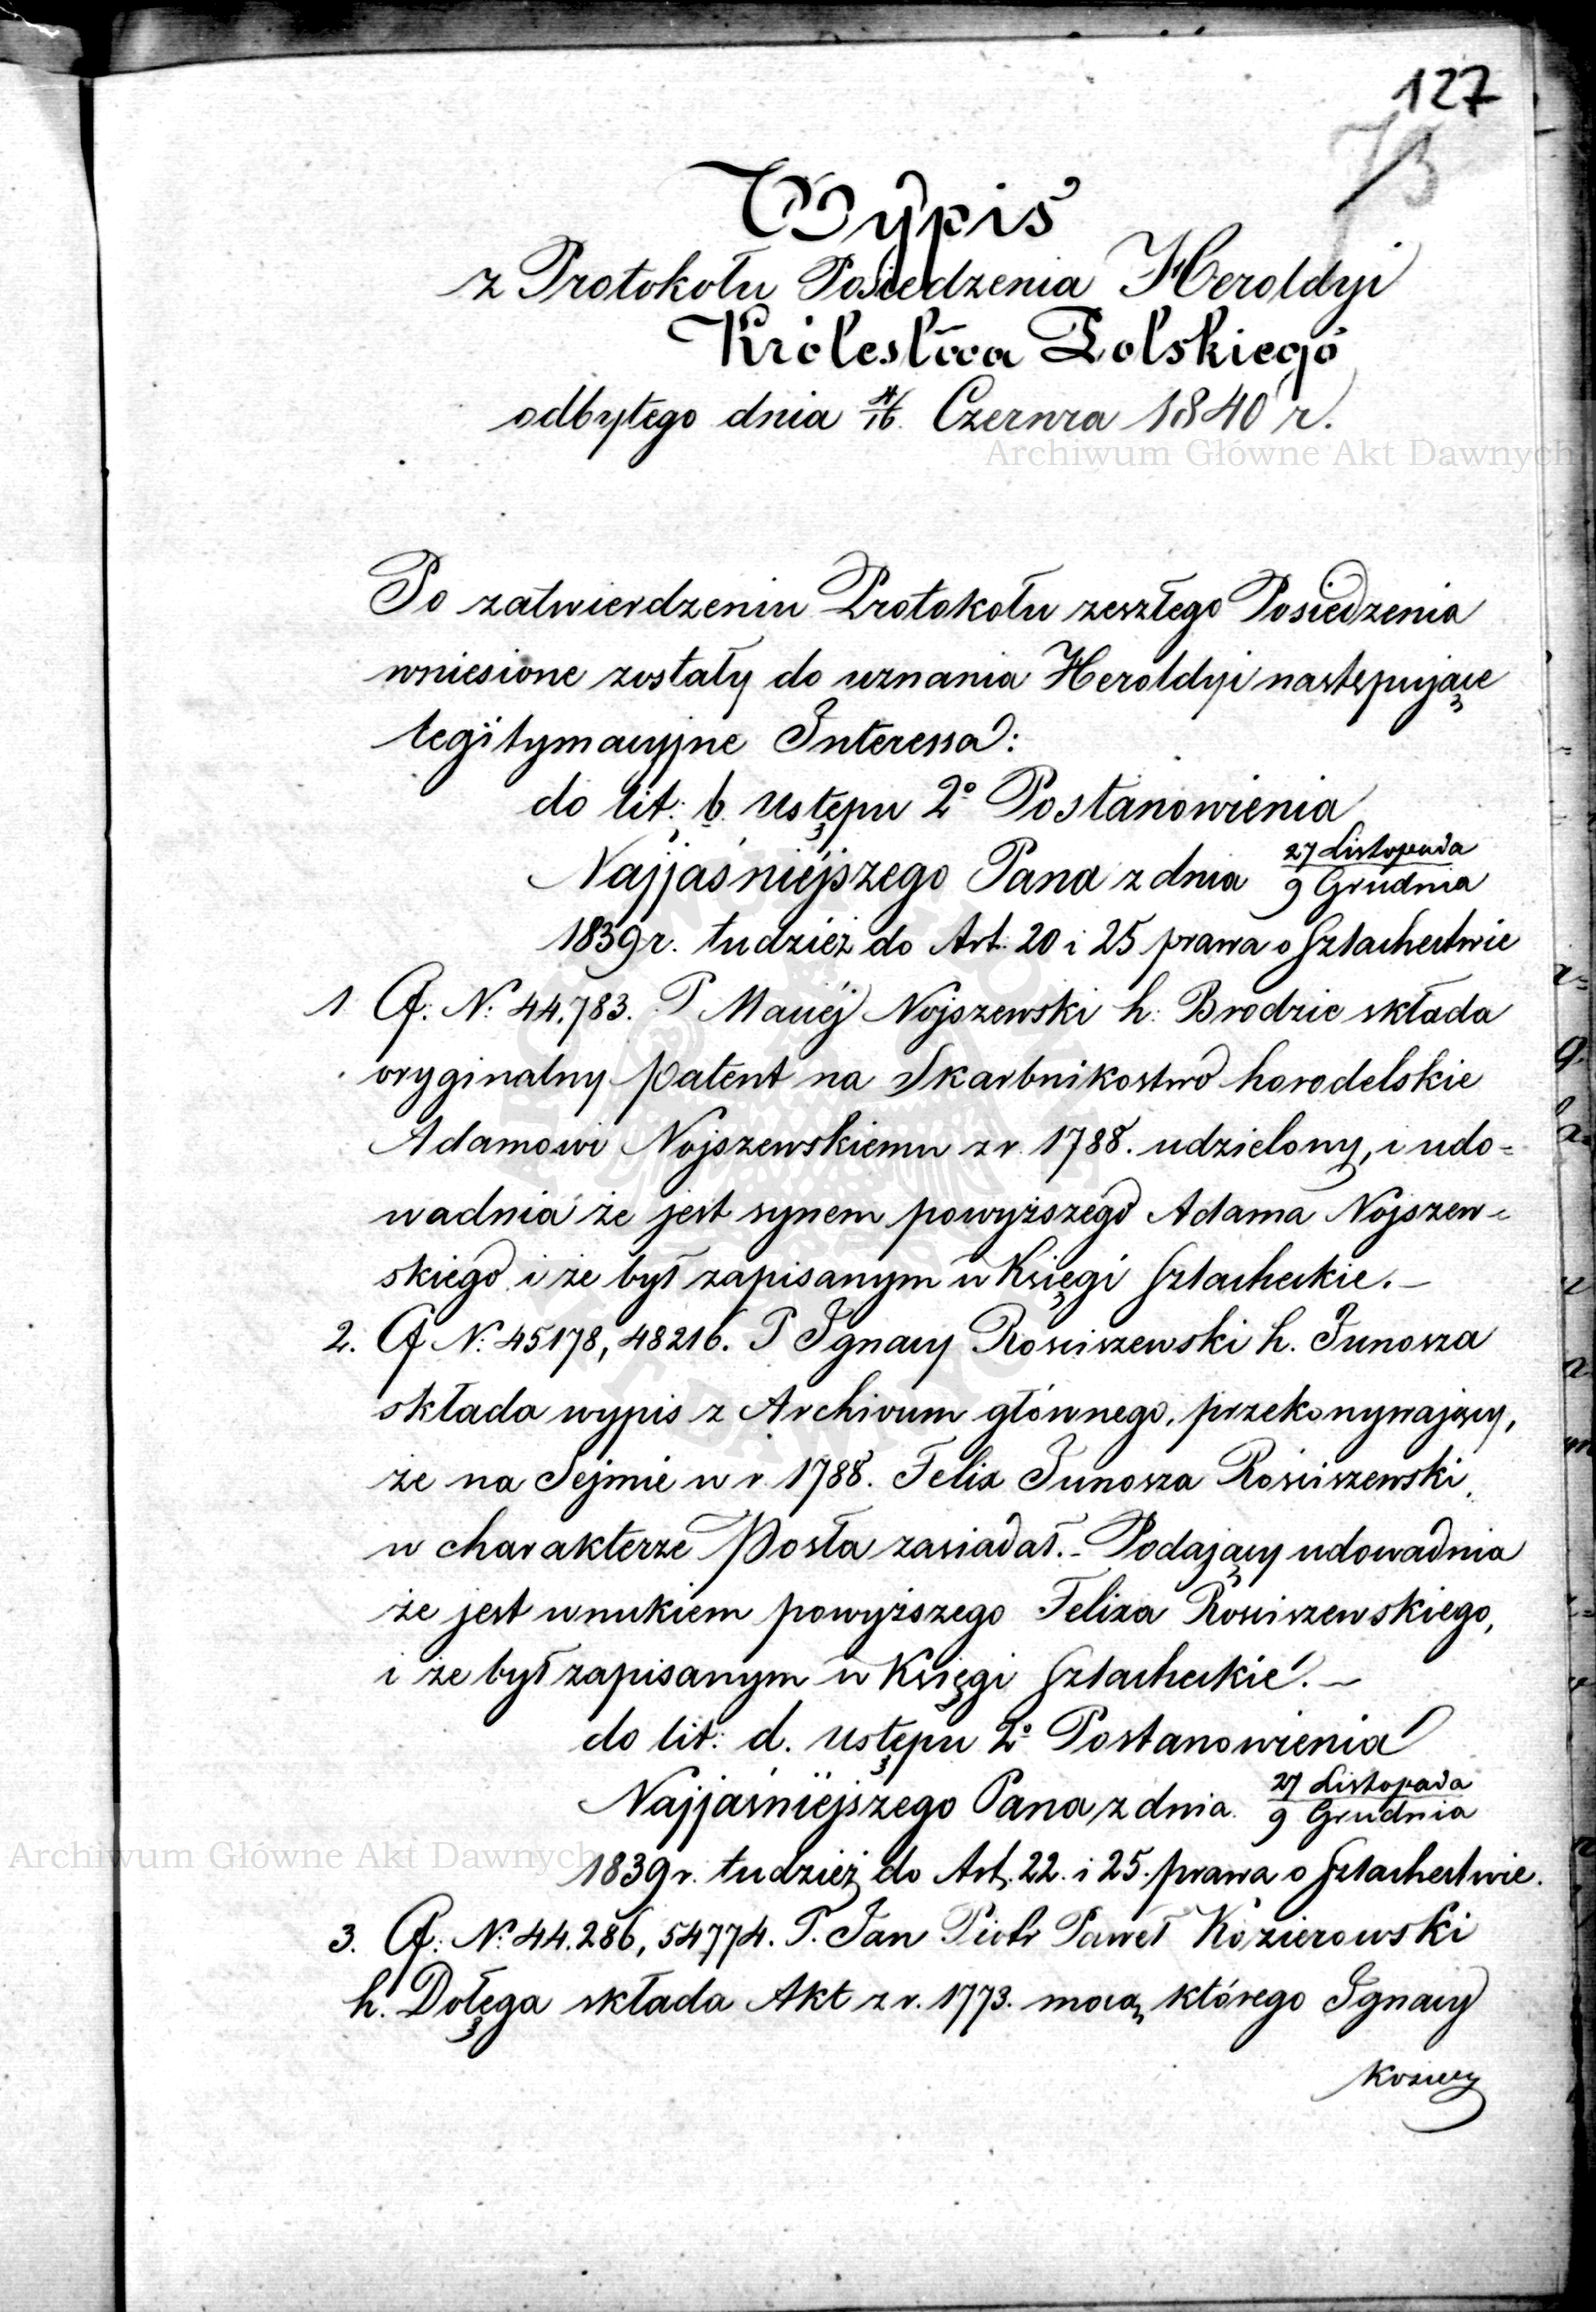 127
73
Wypis
z Protokołu Posiedzenia Heroldyi
Królestwa Polskiego
odbytego dnia 4/16. Czerwca 1840 r.
Archiwum Główne Akt Dawnych
Po zatwierdzeniu Protokołu zeszłego Posiedzenia
wniesione zostały do uznania Heroldyi następujące
legitymacyjne Interessa:
do lit: b. Ustępu 2º Postanowienia
Najjaśniejszego Pana z dnia 27 Listopada / 9 Grudnia
1839 r. tudzież do Art: 20 i 25 prawa o Szlachectwie
1 A: N: 44,783. P Maciej Nojszewski h: Brodzic składa
oryginalny patent na Skarbnikostwo horodelskie
Adamowi Nojszewskiemu z r. 1788. udzielony, i udo=
wadnia że jest synem powyższego Adama Nojszew-
skiego i że był zapisanym w Księgi Szlacheckie. –
2. A N: 45178, 48216. P Ignacy Rościszewski h. Junosza
składa wypis z Archivum głównego, przekonywający,
że na Sejmie w r. 1788. Felix Junosza Rościszewski,
w charakterze Posła zasiadał. – Podający udowadnia
że jest wnukiem powyższego Felixa Rościszewskiego,
i że był zapisanym w Księgi Szlacheckie. –
do lit: d. Ustępu 2º Postanowienia
Najjaśniejszego Pana z dnia 27 Listopada / 9 Grudnia
Archiwum Główne Akt Dawnych
1839 r. tudzież do Art. 22. i 25. prawa o Szlachectwie.
3. A: N: 44.286, 54774. P. Jan Piotr Paweł Kozierowski
h. Dołęga składa Akt z r. 1773. mocą którego Ignacy